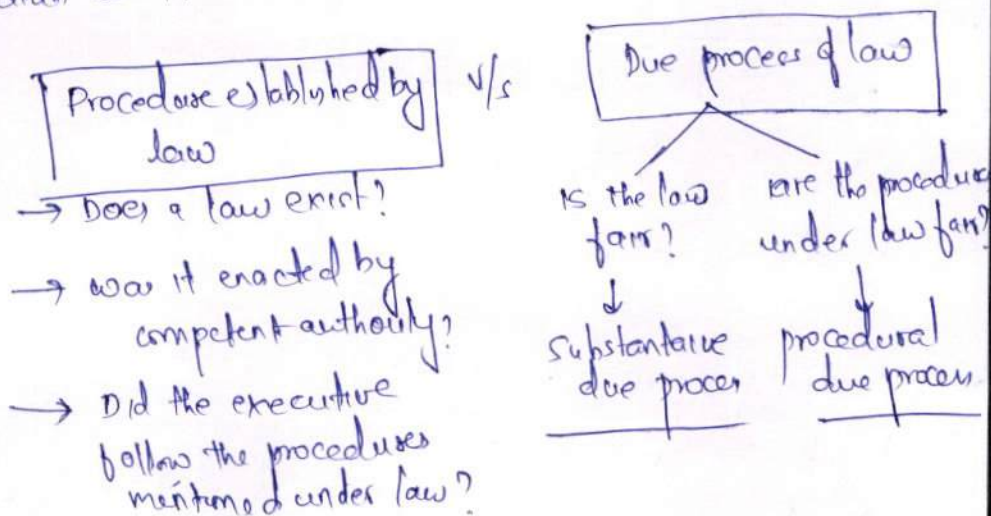 Procedure established by
law
v/s
Due process of law
→ Does a law exist?
→ was it enacted by
competent authority?
→ Did the executive
follow the procedures
mentioned under law?
is the law
fair?
↓
substantaive
due process
are the procedure
under law fair?
↓
procedural
due process